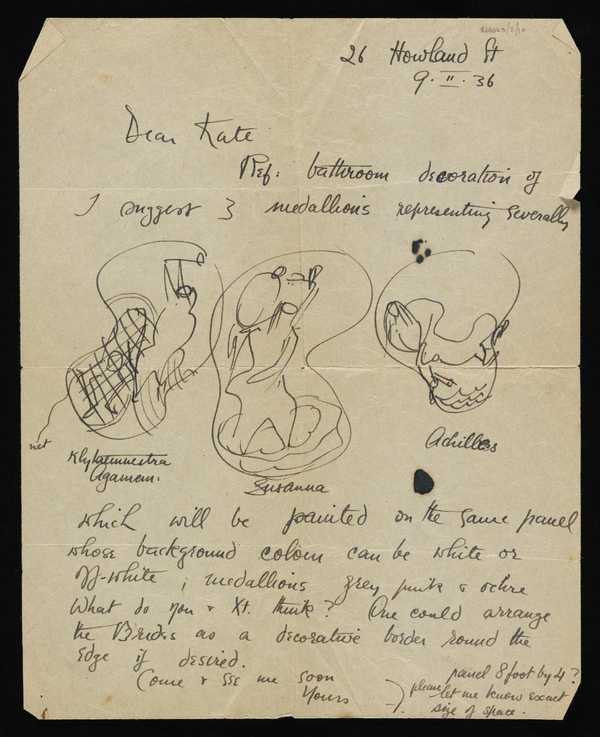 26 Howland St
9. II. 36
Dear Kate
Ref: bathroom decoration of
I suggest 3 medallions representing severally
net
Klytaemnestra
Agamem.
Susanna
Achilles
which will be painted on the same panel
whose background colour can be white or
off-white; medallions grey pink & ochre
What do you & Xt. think? One could arrange
the Brides as a decorative border round the
edge if desired.
Come & see me soon
Yours
panel 8 foot by 4?
please let me know exact
size of space.